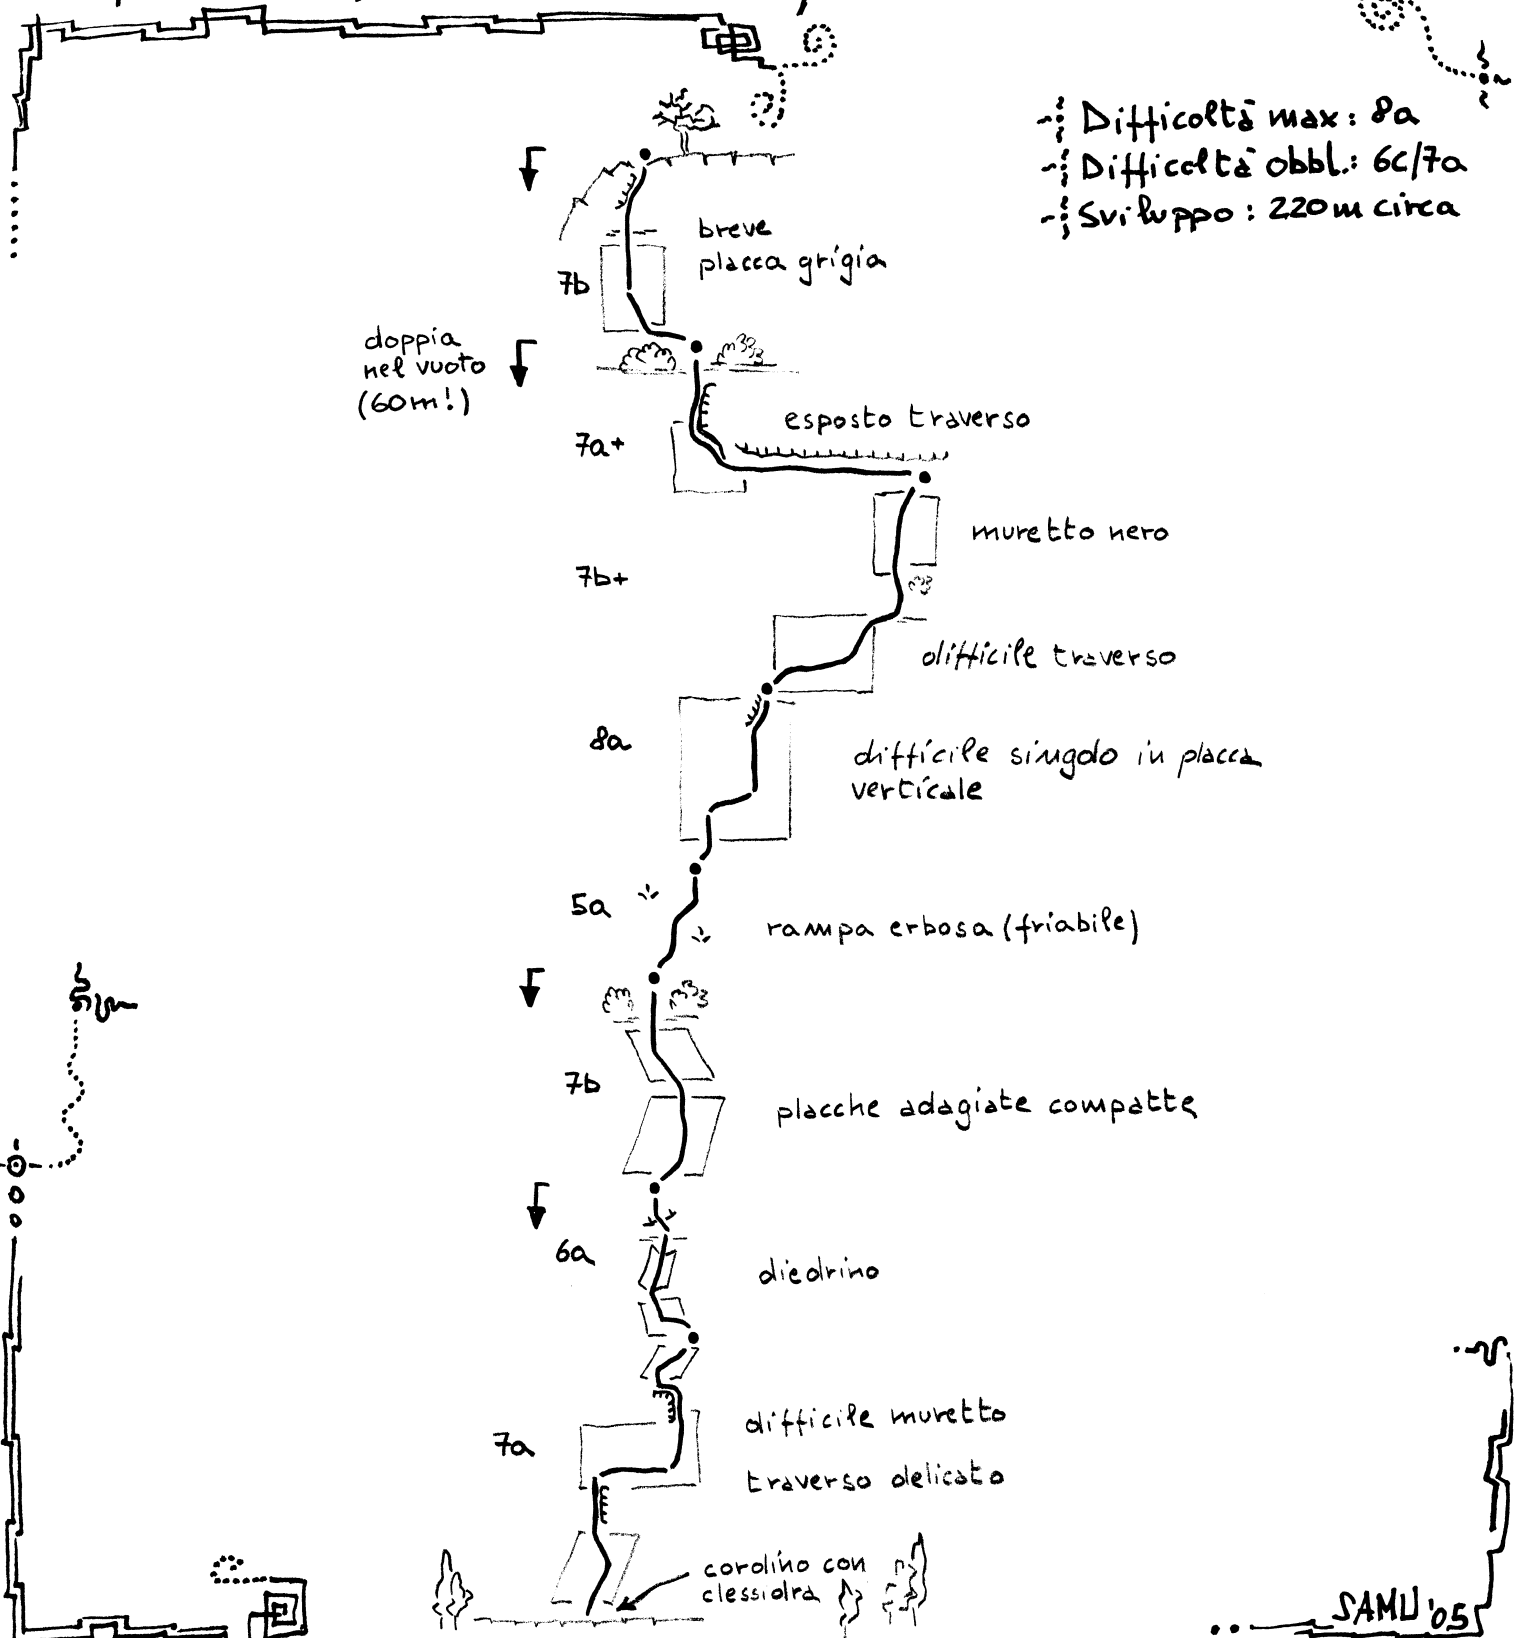 Difficoltà max: 8a
Difficoltà obbl.: 6c/7a
Sviluppo: 220m circa
breve
placca grigia
7b
doppia
nel vuoto
(60m!)
esposto traverso
7a+
muretto nero
7b+
difficile traverso
8a
difficile singolo in placca
verticale
5a
rampa erbosa (friabile)
7b
placche adagiate compatte
6a
diedrino
difficile muretto
7a
traverso delicato
cordino con
clessidra
SAMU '05